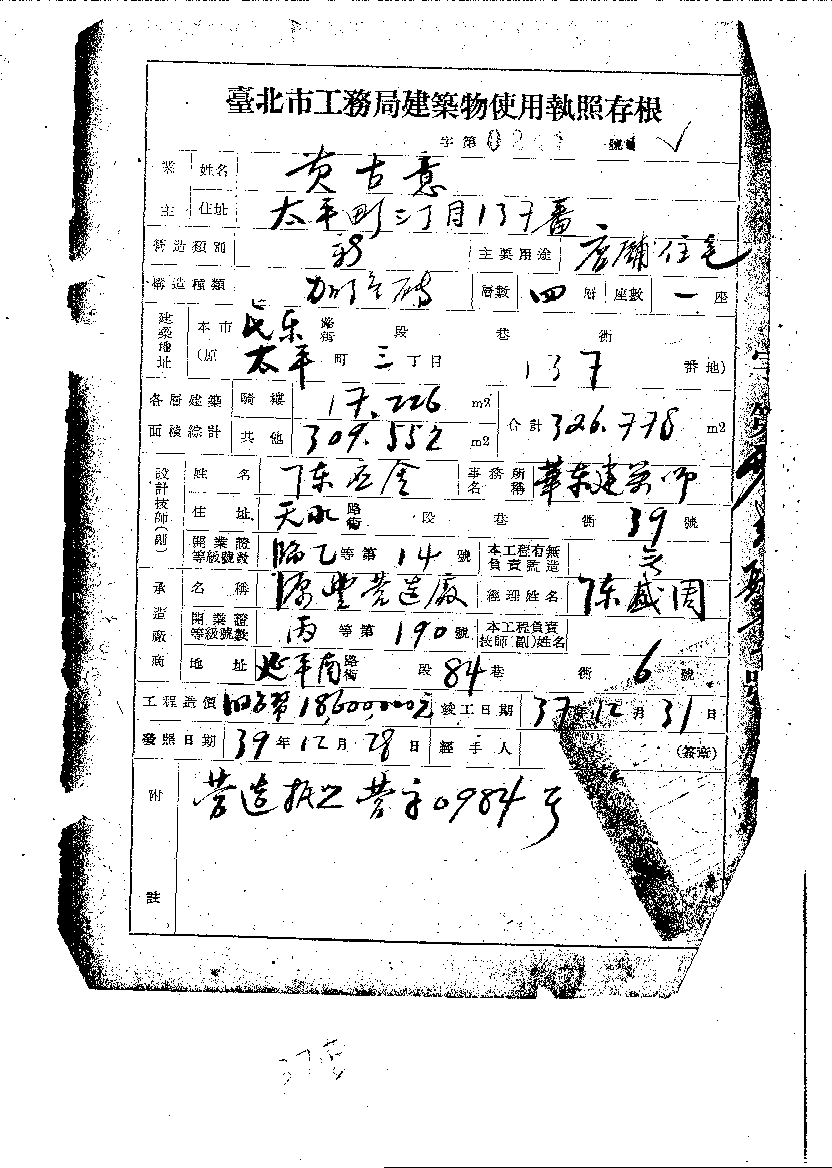 臺北市工務局建築物使用執照存根
字第 024 號
業主 姓名 黄古意
住址 太平町三丁目137番
營造類別 新 主要用途 店舖住宅
構造種類 加強磚 層數 四 層 座數 一 座
建築地址 本市 民樂 路街 段 巷 衖
(原 太平 町 三 丁目 137 番地)
各層建築 騎樓 17.226 m2
面積綜計 其他 309.552 m2 合計 326.778 m2
設計技師(副) 姓名 陳 事務所名稱 華東建築師
住址 天水 路街 段 巷 衖 39 號
開業證等級號數 臨乙 等第 14 號 本工程有無負責監造
承造廠商 名稱 源豐营造廠 經理姓名 陳盛周
開業證等級號數 丙 等第 190 號 本工程負責技師(副)姓名
地址 延平南 路街 段 84 巷 衖 6 號
工程造價 旧台幣18,600,000元 竣工日期 37年12月31日
發照日期 39年12月28日 經手人 (簽章)
附註 营造执照营字0984号